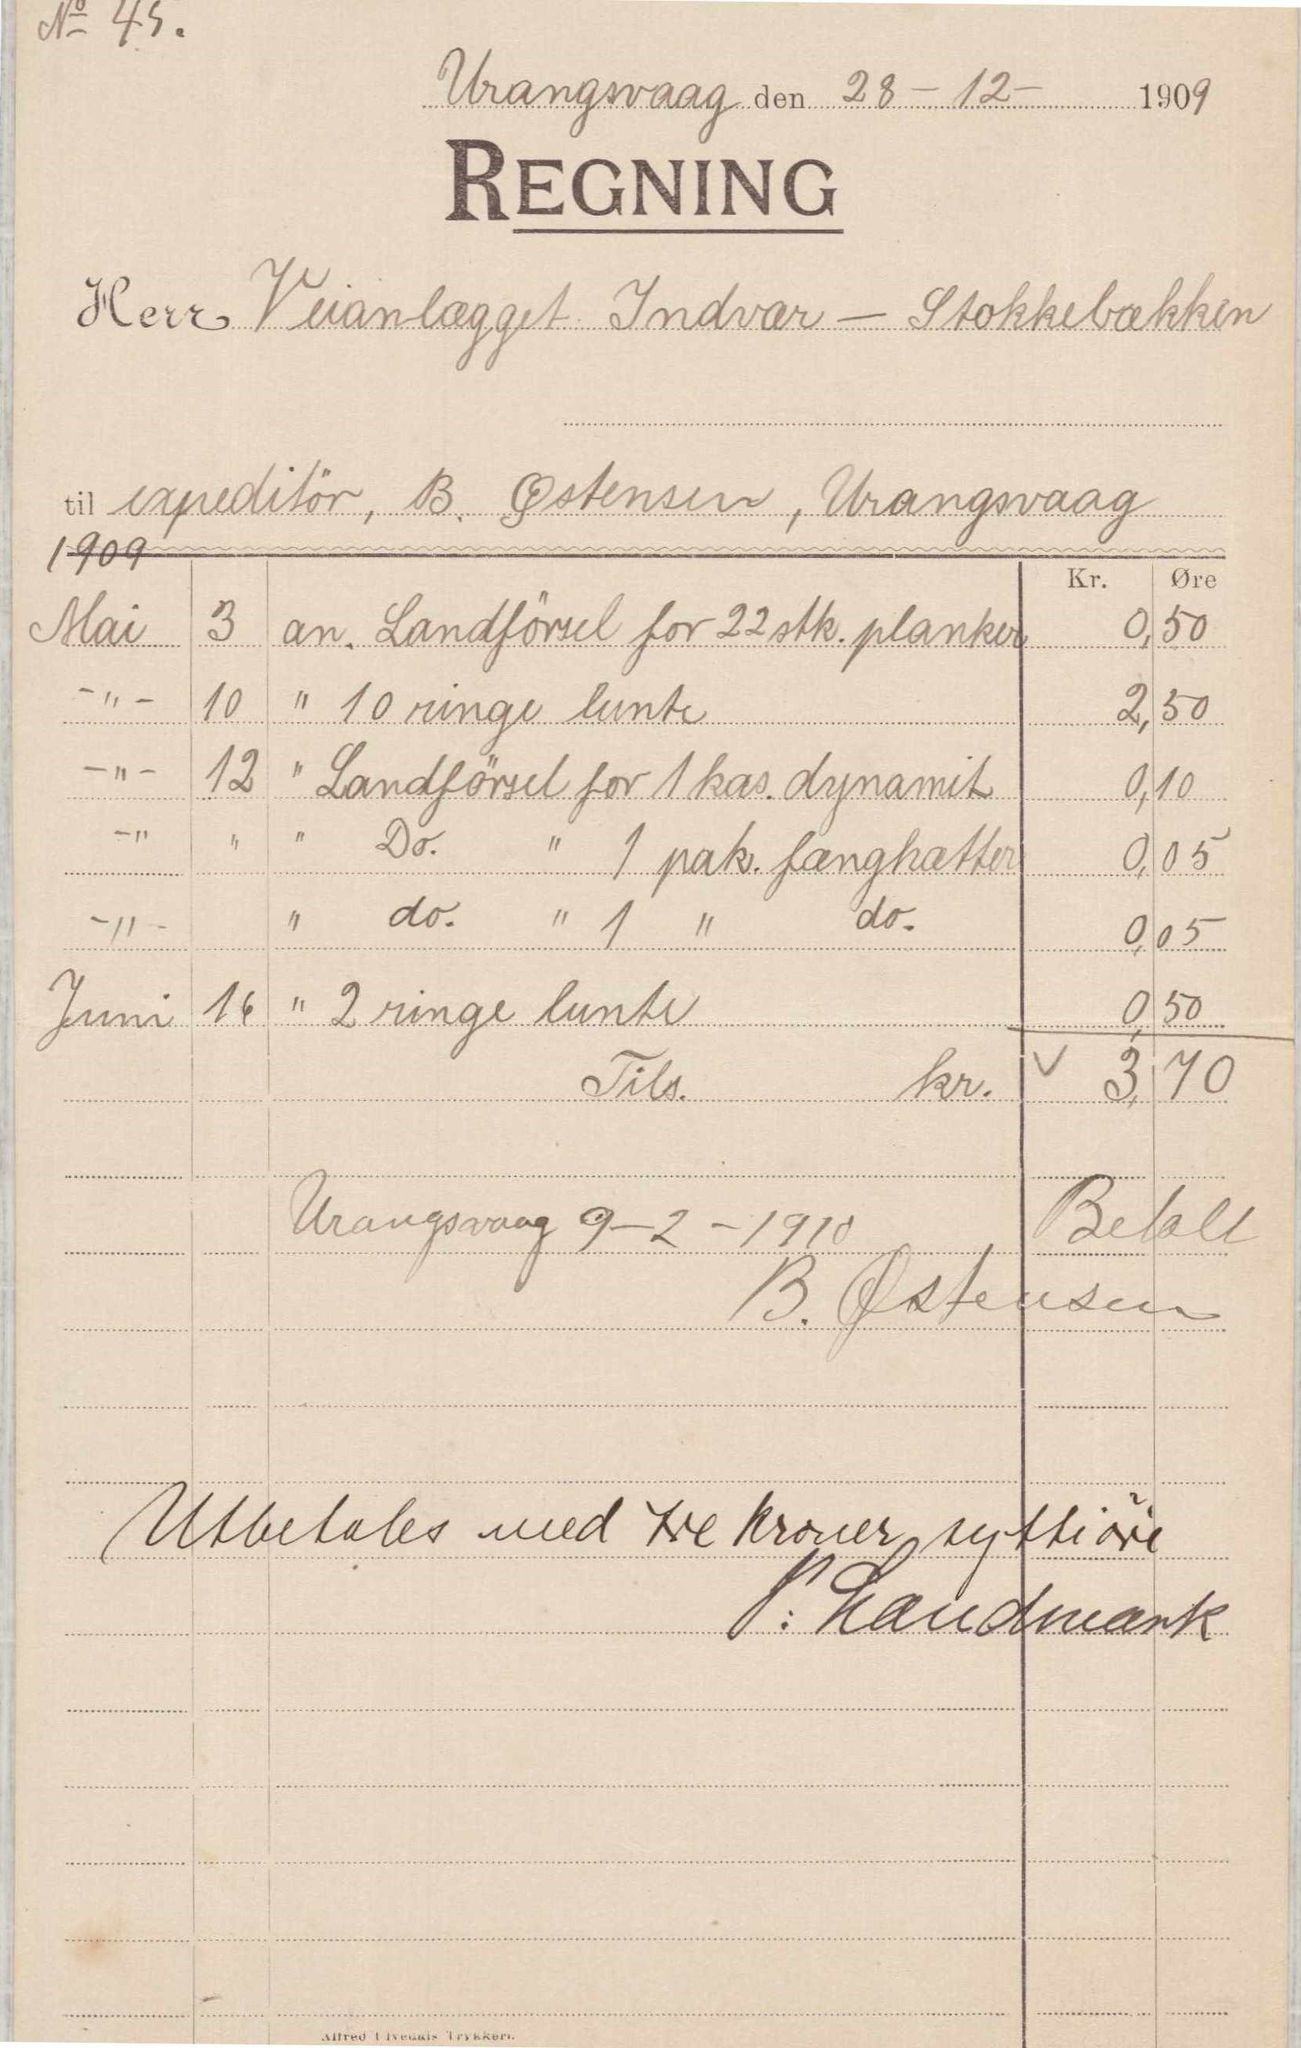 No 45.
Urangsvaag den 28-12- 1909
REGNING
Herr Veianlægget Indvær - Stokkebækken
til expeditör, B. Østensen, Urangsvaag
1909
Kr. Øre
Mai 3 an. Landförsel for 22 stk. planker 0,50
-"- 10 " 10 ringe lunte 2,50
-"- 12 " Landförsel for 1 kas. dynamit 0,10
-" " " Do. " 1 pak. fænghætter 0,05
-"- " do. " 1 " do. 0,05
Juni 16 " 2 ringe lunte 0,50
Tils. kr. V 3,70
Urangsvaag 9-2-1910 Betalt
B. Østensen
Utbetales med tre kroner syttiöre
P. Landmark
Alfred Trykkeri.